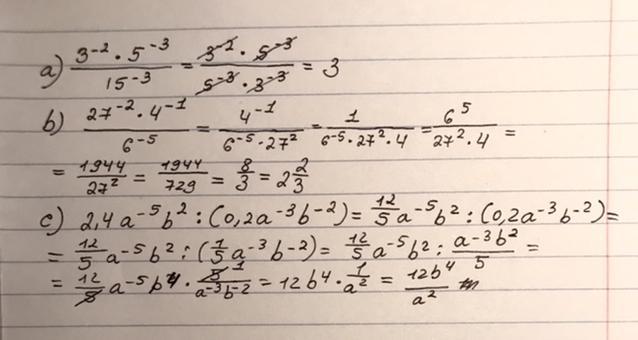 a) \frac{3^{-2} \cdot 5^{-3}}{15^{-3}} = \frac{3^{-2} \cdot 5^{-3}}{5^{-3} \cdot 3^{-3}} = 3
b) \frac{27^{-2} \cdot 4^{-1}}{6^{-5}} = \frac{4^{-1}}{6^{-5} \cdot 27^2} = \frac{1}{6^{-5} \cdot 27^2 \cdot 4} = \frac{6^5}{27^2 \cdot 4} =
= \frac{1944}{27^2} = \frac{1944}{729} = \frac{8}{3} = 2\frac{2}{3}
c) 2,4a^{-5}b^2 : (0,2a^{-3}b^{-2}) = \frac{12}{5}a^{-5}b^2 : (0,2a^{-3}b^{-2}) =
= \frac{12}{5}a^{-5}b^2 : (\frac{1}{5}a^{-3}b^{-2}) = \frac{12}{5}a^{-5}b^2 : \frac{a^{-3}b^2}{5} =
= \frac{12}{5}a^{-5}b^4 \cdot \frac{5^1}{a^{-3}b^{-2}} = 12b^4 \cdot \frac{1}{a^2} = \frac{12b^4}{a^2}